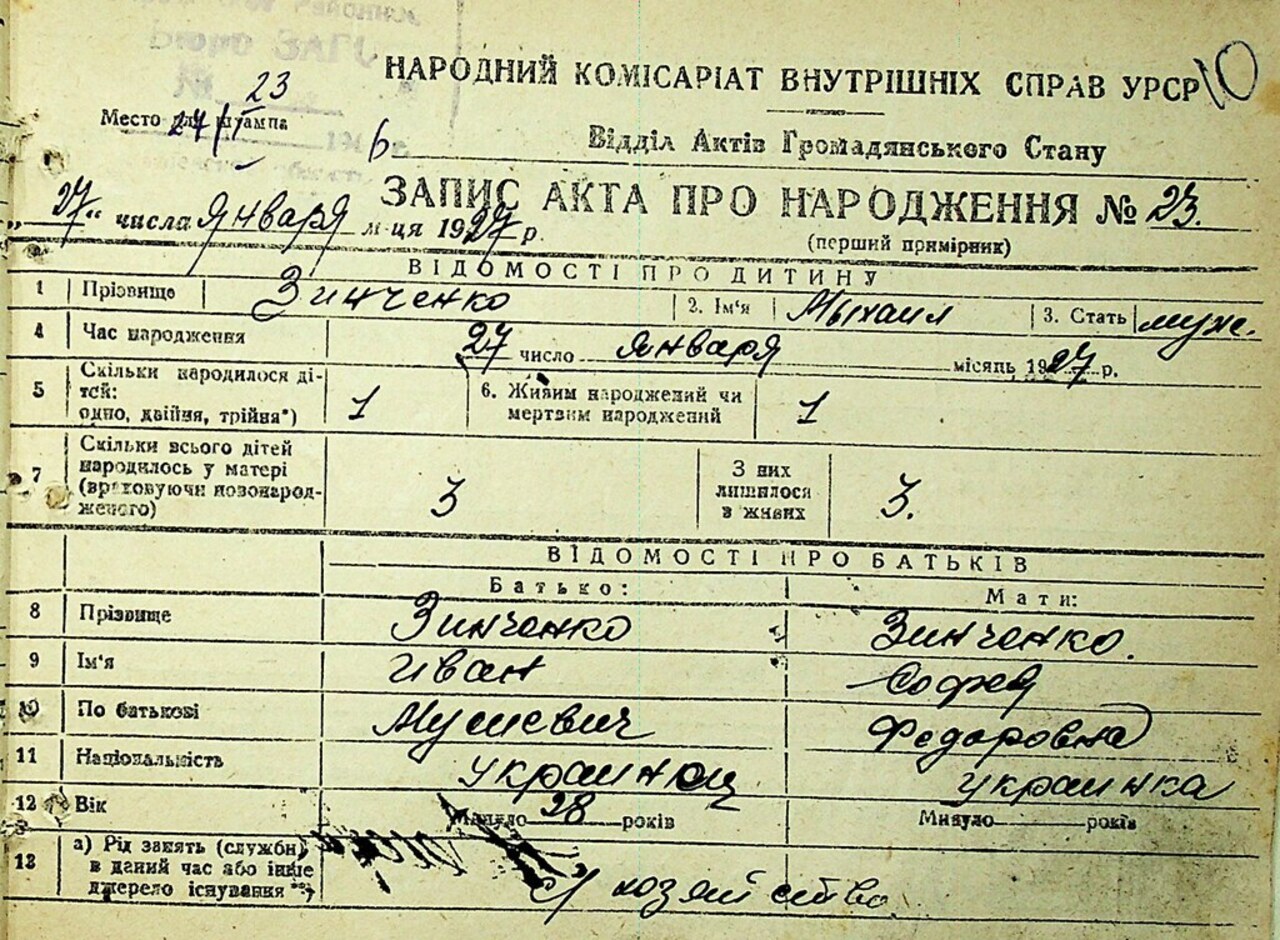 Бюро ЗАГС
НАРОДНИЙ КОМІСАРІАТ ВНУТРІШНІХ СПРАВ УРСР 10
23
Место для штампа
27/I
6
Відділ Актів Громадянського Стану
ЗАПИС АКТА ПРО НАРОДЖЕННЯ № 23.
„27“ числа Января м-ця 1927 р.
(перший примірник)
ВІДОМОСТІ ПРО ДИТИНУ
1 Прізвище Зинченко 2. Ім'я Мыхаил 3. Стать муж.
4 Час народження 27 число Января місяць 1927 р.
5 Скільки народилося ді-
тей:
одно, двійня, трійня*) 1
6. Живим народжений чи
мертвим народжений 1
7 Скільки всього дітей
народилось у матері
(враховуючи новонарод-
женого) 3
З них
лишилося
в живих 3.
ВІДОМОСТІ ПРО БАТЬКІВ
Батько: Мати:
8 Прізвище Зинченко Зинченко.
9 Ім'я Иван Софея
10 По батькові Мусиевич Федоровна
11 Національність украинец украинка
12 Вік Минуло 28 років Минуло років
13 а) Рід занять (служби)
в даний час або інше
джерело існування **)
с/ хозяйство